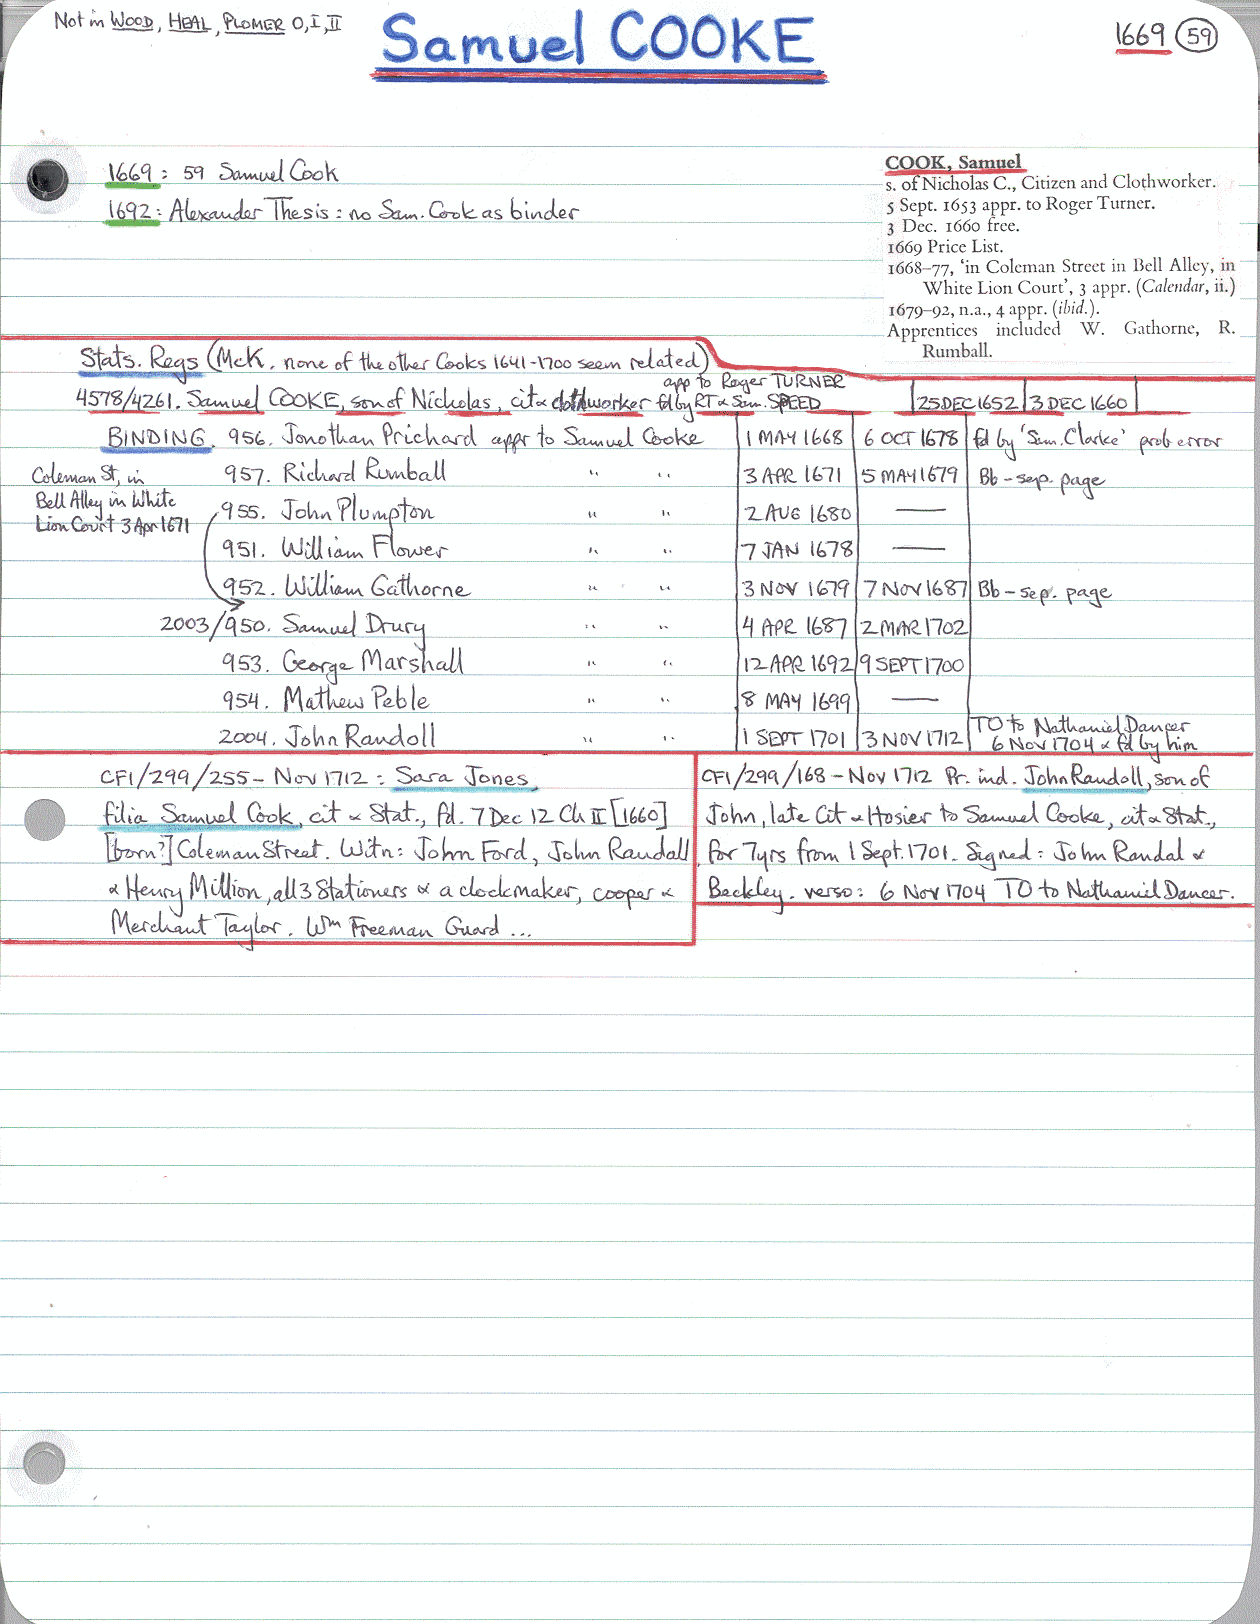 Not in WOOD, HEAL, PLOMER O, I, II
Samuel COOKE
1669 59
1669: 59 Samuel Cook
1692: Alexander Thesis: no Sam. Cook as binder
COOK, Samuel
s. of Nicholas C., Citizen and Clothworker.
5 Sept. 1653 appr. to Roger Turner.
3 Dec. 1660 free.
1669 Price List.
1668–77, 'in Coleman Street in Bell Alley, in
White Lion Court', 3 appr. (Calendar, ii.)
1679–92, n.a., 4 appr. (ibid.).
Apprentices included W. Gathorne, R.
Rumball.
Stats. Regs (McK. none of the other Cooks 1641-1700 seem related)
app to Roger TURNER
4578/4261. Samuel COOKE, son of Nicholas, cit & clothworker fd by RT & Sam. SPEED 25 DEC 1652 3 DEC 1660
BINDING. 956. Jonothan Prichard appr to Samuel Cooke 1 MAY 1668 6 OCT 1678 fd by 'Sam. Clarke' prob error
Coleman St, in
Bell Alley in White
Lion Court 3 Apr 1671
957. Richard Rumball " " 3 APR 1671 5 MAY 1679 Bb - sep. page
955. John Plumpton " " 2 AUG 1680 —
951. William Flower " " 7 JAN 1678 —
952. William Gathorne " " 3 NOV 1679 7 NOV 1687 Bb - sep. page
2003/950. Samuel Drury " " 4 APR 1687 2 MAR 1702
953. George Marshall " " 12 APR 1692 9 SEPT 1700
954. Mathew Peble " " 8 MAY 1699 —
2004. John Randoll " " 1 SEPT 1701 3 NOV 1712 TO to Nathaniel Dancer
6 Nov 1704 & fd by him
CF1/299/255 - Nov 1712: Sara Jones
filia Samuel Cook, cit & Stat., fd. 7 Dec 12 Ch II [1660]
[born?] Coleman Street. Witn: John Ford, John Randall
& Henry Million, all 3 Stationers & a clockmaker, cooper &
Merchant Taylor. Wm Freeman Guard ...
CF1/299/168 - Nov 1712 Pr. ind. John Randoll, son of
John, late Cit & Hosier to Samuel Cooke, cit & Stat.,
for 7 yrs from 1 Sept. 1701. Signed: John Randal &
Beckley. verso: 6 Nov 1704 TO to Nathaniel Dancer.